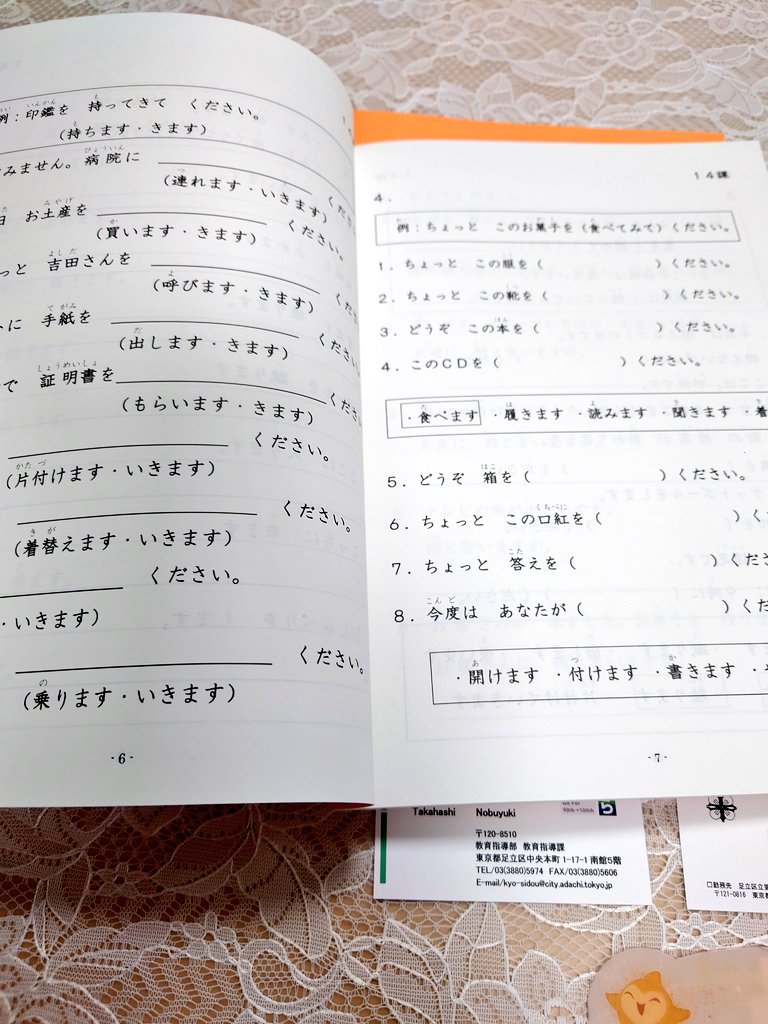 例：印鑑を 持ってきて ください。
(持ちます・きます)
みません。病院に
(連れます・いきます)
お土産を
(買います・きます)
っと 吉田さんを
(呼びます・きます)
に 手紙を
(出します・きます)
で 証明書を
(もらいます・きます)
ください。
(片付けます・いきます)
ください。
(着替えます・いきます)
ください。
・いきます)
ください。
(乗ります・いきます)
-6-
14課
4．
例：ちょっと このお菓子を（食べてみて）ください。
1．ちょっと この服を（ ）ください。
2．ちょっと この靴を（ ）ください。
3．どうぞ この本を（ ）ください。
4．このCDを（ ）ください。
・食べます ・履きます ・読みます ・聞きます ・着
5．どうぞ 箱を（ ）ください。
6．ちょっと この口紅を（ ）く
7．ちょっと 答えを（ ）くだ
8．今度は あなたが（ ）くだ
・開けます ・付けます ・書きます ・
-7-
Takahashi Nobuyuki
〒120-8510
教育指導部 教育指導課
東京都足立区中央本町1-17-1 南館5階
TEL/03(3880)5974 FAX/03(3880)5606
E-mail/kyo-sidou@city.adachi.tokyo.jp
5
90th→100th
□勤務先 足立区立
〒121-0816 東京